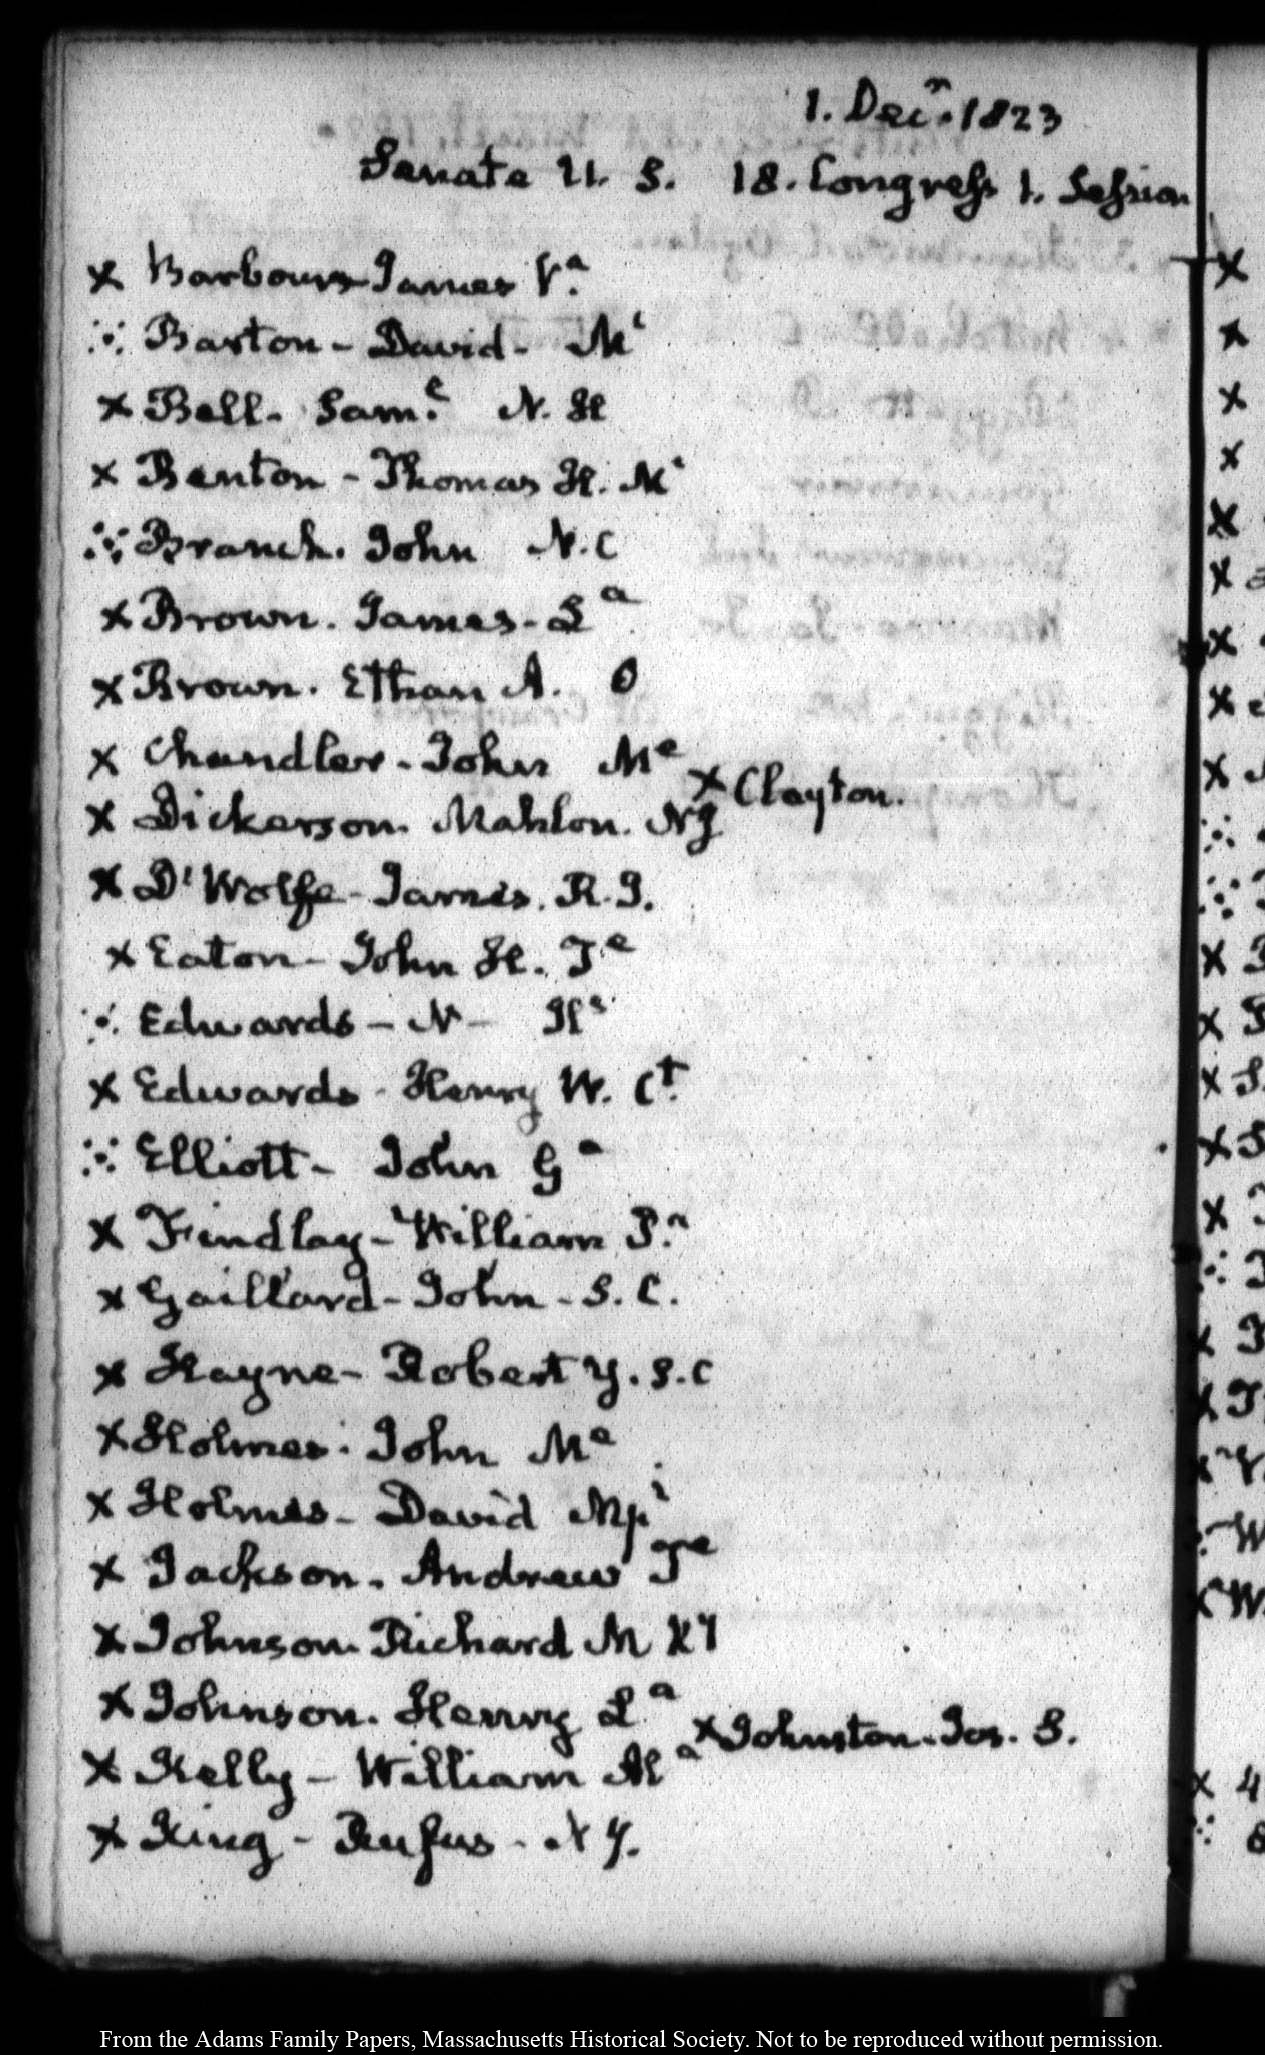 1. Decr. 1823
Senate U. S. 18. Congress 1. Session
x Barbour James Va.
Barton - David - Mi
x Bell. Saml. N. H
x Benton - Thomas H. Mi
Branch. John N. C
x Brown. James - La
x Brown. Ethan A. O
x Chandler - John Me
x Clayton.
x Dickerson. Mahlon. NJ
x D'Wolfe - James. R. I.
x Eaton - John H. Te
Edwards - N - Ils
x Edwards - Henry W. Ct.
Elliott - John Ga
x Findlay - William Pa.
x Gaillard - John - S. C.
x Hayne - Robert Y. S. C
x Holmes. John Me
x Holmes - David Mpi
x Jackson. Andrew Te
x Johnson. Richard M Ky
x Johnson. Henry La
x Johnston. Jos. S.
x Kelly - William Al a
x King - Rufus - N Y.
From the Adams Family Papers, Massachusetts Historical Society. Not to be reproduced without permission.